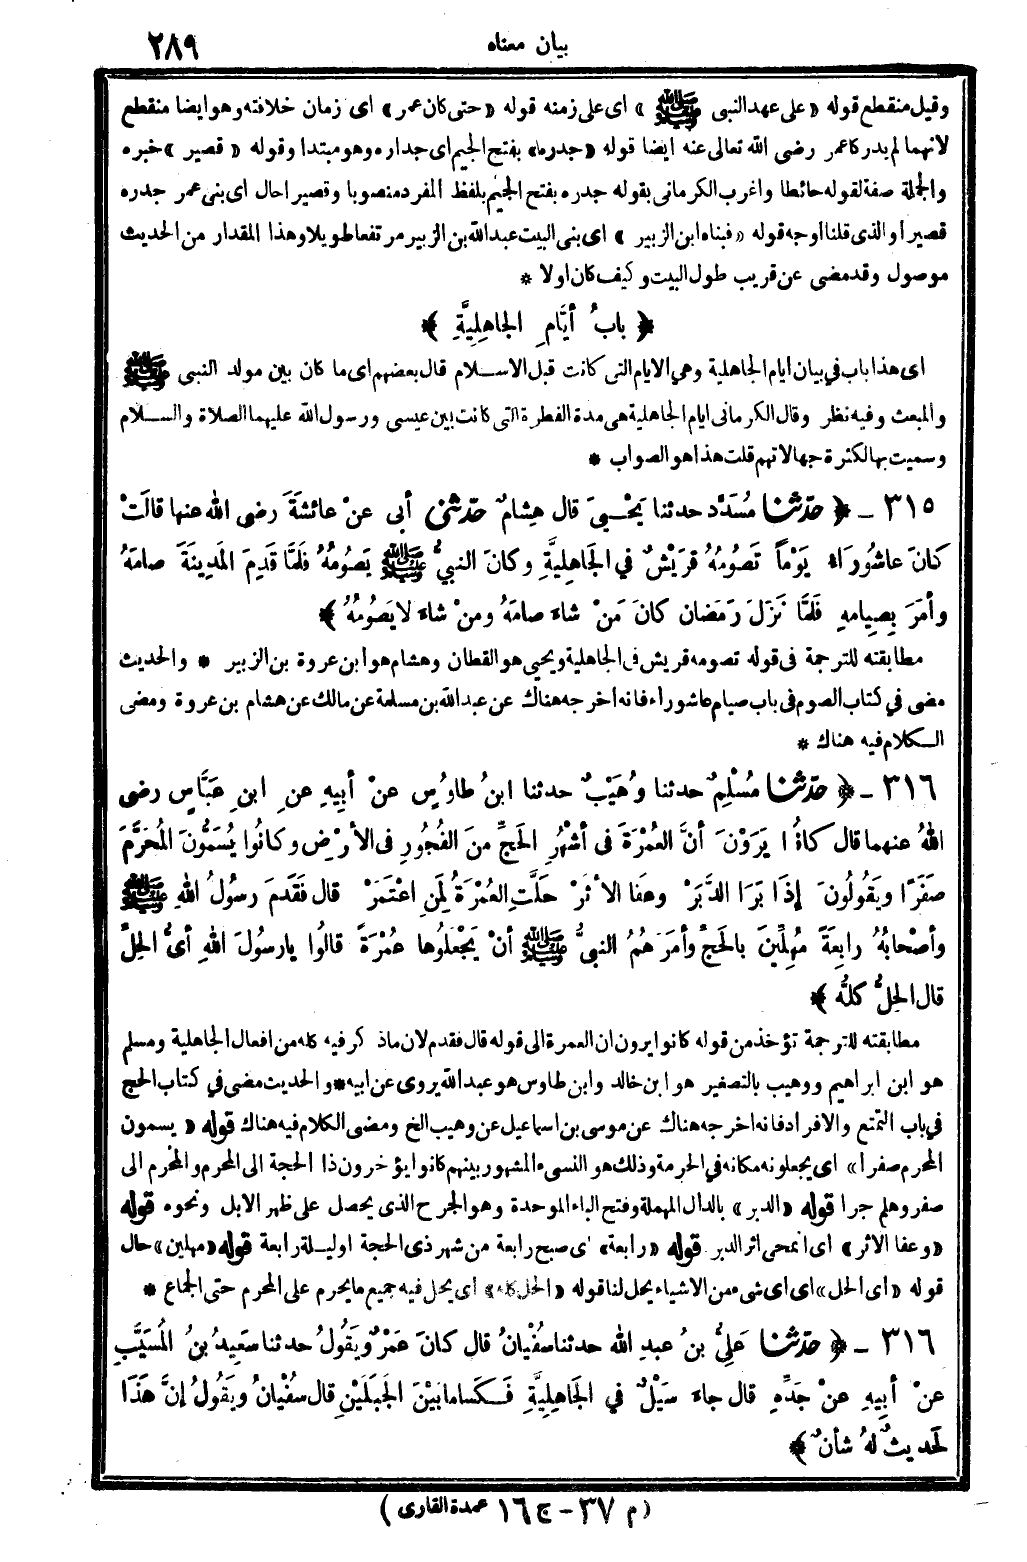 بيان معناه ٢٨٩
وقيل منقطع قوله «على عهد النبى ﷺ» اى على زمنه قوله «حتى كان عمر» اى زمان خلافته وهو ايضا منقطع
لانهما لم يدركا عمر رضى الله تعالى عنه ايضا قوله «جدره» بفتح الجيم اى جداره وهو مبتدا وقوله «قصير» خبره
والجملة صفة لقوله حائطا واغرب الكرمانى بقوله جدره بفتح الجيم بلفظ المفرد منصوبا وقصيرا حال اى بنى عمر جدره
قصيرا والذى قلنا اوجه قوله «فبناه ابن الزبير» اى بنى البيت عبد الله بن الزبير مرتفعا طويلا وهذا المقدار من الحديث
موصول وقد مضى عن قريب طول البيت وكيف كان اولا *
﴿ بابُ أيَّامِ الجاهِلِيَّةِ ﴾
اى هذا باب فى بيان ايام الجاهلية وهي الايام التى كانت قبل الاسلام قال بعضهم اى ما كان بين مولد النبى ﷺ
والمبعث وفيه نظر وقال الكرمانى ايام الجاهلية هى مدة الفطرة التى كانت بين عيسى ورسول الله عليهما الصلاة والسلام
وسميت بها لكثرة جهالاتهم قلت هذا هو الصواب *
٣١٥ ـ ﴿ حدّثنا مُسَدَّد حدثنا يَحْـيىَ قال هِشامٌ حدّثنى أبى عنْ عائشَةَ رضى الله عنها قالَتْ
كانَ عاشُورَاءُ يَوْماً تَصُومُهُ قُرَيْشٌ في الجَاهِلِيَّةِ وكانَ النبيُّ ﷺ يَصُومُهُ فَلَمَّا قَدِمَ المَدِينَةَ صامَهُ
وأمَرَ بِصِيامِهِ فَلَمَّا نَزَلَ رَمَضان كانَ مَنْ شاءَ صامَهُ ومنْ شاءَ لا يَصُومُهُ ﴾
مطابقته للترجمة فى قوله تصومه قريش فى الجاهلية ويحيى هو القطان وهشام هو ابن عروة بن الزبير * والحديث
مضى في كتاب الصوم فى باب صيام عاشوراء فانه اخرجه هناك عن عبد الله بن مسلمة عن مالك عن هشام بن عروة ومضى
الكلام فيه هناك *
٣١٦ ـ ﴿ حدّثنا مُسْلِمٌ حدثنا وُهَيْبٌ حدثنا ابنُ طاوُسٍ عنْ أبِيهِ عنِ ابنِ عَبَّاسٍ رضى
اللهُ عنهما قال كانُوا يَرَوْنَ أنَّ العُمْرَةَ فى أشْهُرِ الحَجِّ منَ الفُجُورِ فى الأرْضِ وكانُوا يُسَمُّونَ المُحَرَّمَ
صَفَرًا ويَقُولُونَ إذَا بَرَا الدَّبَرْ وعَفا الأثَرْ حَلَّتِ العُمْرَةُ لِمَنِ اعْتَمَرْ قال فَقَدَمَ رسولُ اللهِ ﷺ
وأصْحابُهُ رابِعَةً مُهِلِّينَ بالحَجِّ وأمَرَهُمُ النبىُّ ﷺ أنْ يَجْعَلُوها عُمْرَةً قالُوا يارسولَ اللهِ أىُّ الحِلِّ
قال الحِلُّ كلُّهُ ﴾
مطابقته للترجمة تؤخذ من قوله كانوا يرون ان العمرة الى قوله قال فقدم لان ما ذكر فيه كله من افعال الجاهلية ومسلم
هو ابن ابراهيم ووهيب بالتصغير هو ابن خالد وابن طاوس هو عبد الله يروى عن ابيه * والحديث مضى في كتاب الحج
في باب التمتع والافراد فانه اخرجه هناك عن موسى بن اسماعيل عن وهيب الخ ومضى الكلام فيه هناك قوله «يسمون
المحرم صفرا» اى يجعلونه مكانه في الحرمة وذلك هو النسىء المشهور بينهم كانوا يؤخرون ذا الحجة الى المحرم والمحرم الى
صفر وهلم جرا قوله «الدبر» بالدال المهملة وفتح الباء الموحدة وهو الجرح الذى يحصل على ظهر الابل ونحوه قوله
«وعفا الاثر» اى انمحى اثر الدبر قوله «رابعة» اى صبح رابعة من شهر ذى الحجة او ليلة رابعة قوله «مهلين» حال
قوله «اى الحل» اى اى شىء من الاشياء يحل لنا قوله «الحل كله» اى يحل فيه جميع ما يحرم على المحرم حتى الجماع *
٣١٦ ـ ﴿ حدّثنا عَلِىُّ بنُ عبدِ الله حدثنا سُفْيانُ قال كانَ عَمْرٌو يَقُولُ حدثنا سَعِيدُ بنُ المُسَيَّبِ
عنْ أبِيهِ عنْ جَدِّهِ قال جاءَ سَيْلٌ في الجَاهِلِيَّةِ فَـكَسا ما بَيْنَ الجَبَلَيْنِ قال سُفْيانُ ويَقُولُ إنَّ هَذَا
لَحديثٌ لهُ شأنٌ ﴾
(م ٣٧ ـ ج ١٦ عمدة القارى)